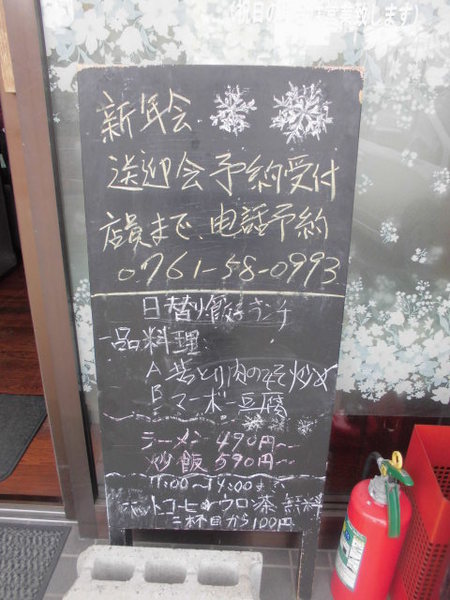 新年会
送迎会予約受付
店員まで、电話予約
0761-58-0993
日替り餃子ランチ
一品料理
A 若とり肉のみそ炒め
B マーボー豆腐
ラーメン 490円〜
炒飯 590円〜
11:00〜14:00まで
ホットコーヒー ウロン茶 無料
二杯目から100円